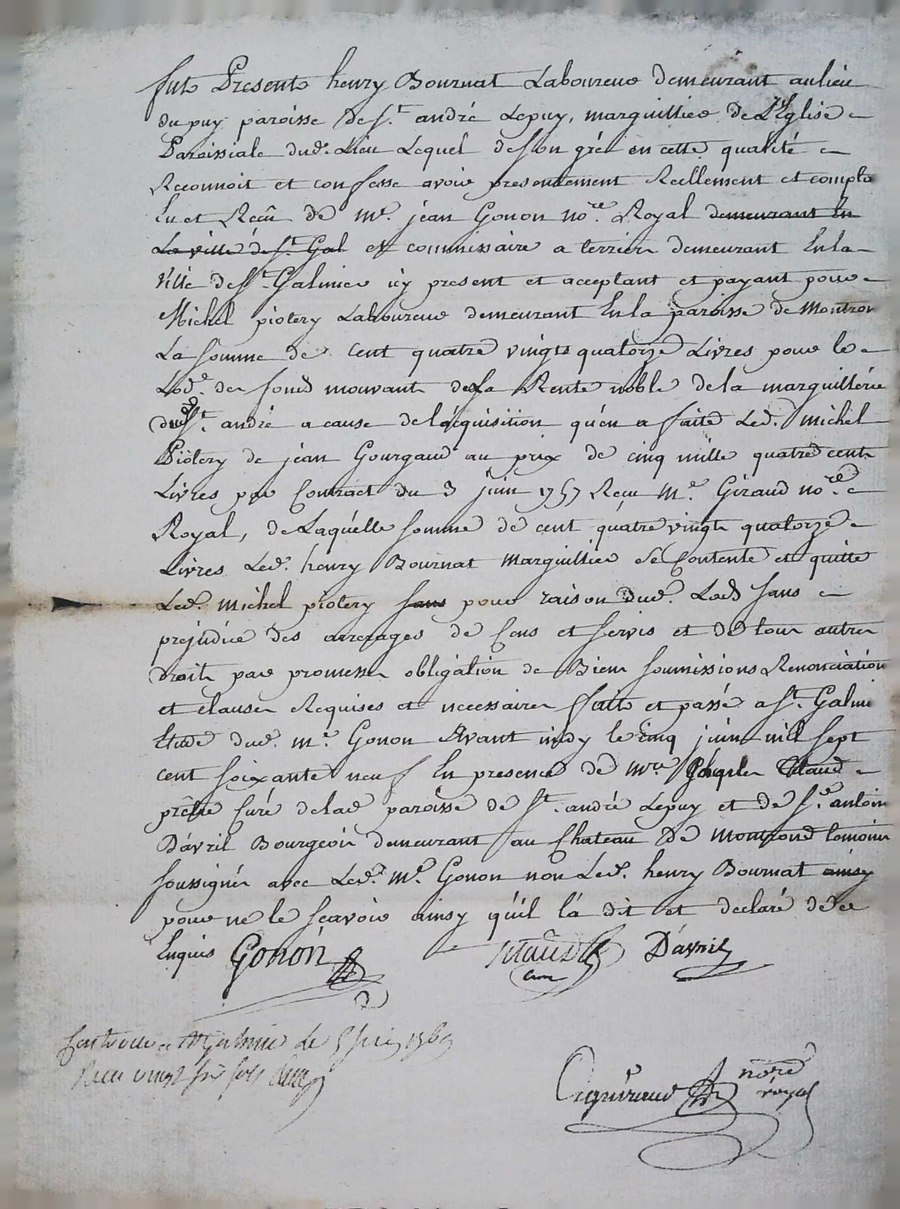 fut Present henry Bournat Laboureur demeurant au lieu
du puy paroisse de St. andré Lepuy, marguillier de L'Eglise
Paroissiale dud. Lieu Lequel de son gré en cette qualité
Reconnoit et confesse avoir presentement Reellement et compta
Eu et Recû de me. jean Gonon nore. Royal demeurant En
La ville de St. Gal et commissaire a terrier demeurant En la
ville de St. Galmier icy present et aceptant et payant pour
Michel piotery Laboureur demeurant En la paroisse de Montron
La somme de cent quatre vingts quatorze Livres pour le
Lod. des fond mouvant de la Rente noble de la marguillerie
dud St. andré a cause de l'acquisition qu'en a faite Led. michel
Piotery de jean Gourgaud au prix de cinq mille quatre cent
Livres par Contract du 3 juin 1757 Recu Me. Giraud nore.
Royal, de Laquelle somme de cent quatre vingt quatorze
Livres Led. henry Bournat Marguillier se Contente et quitte
Led. michel piotery sans pour raison dud. Lod sans
prejudice des arrerages de Cens et servis et de tous autres
droits par promesses obligation de Biens soumissions Renonciation
et clauses Requises et necessaires fait et passé a St. Galmi
Etude dud. me. Gonon Avant midy le cinq juin mil sept
cent soixante neuf En presence de mre
prêtre Curé de lad paroisse de St. andré Lepuy et de Sr. antoin
D'avril Bourgeois demeurant au Chateau De montrond temoins
soussignés avec Led. Me. Gonon non Led. henry Bournat ainsy
pour ne le scavoir ainsy qu'il l'a dit et declaré de ce
Enquis Gonon D'avril
cure
a St Galmier le 5
Recu vingt six sols
nore
royal